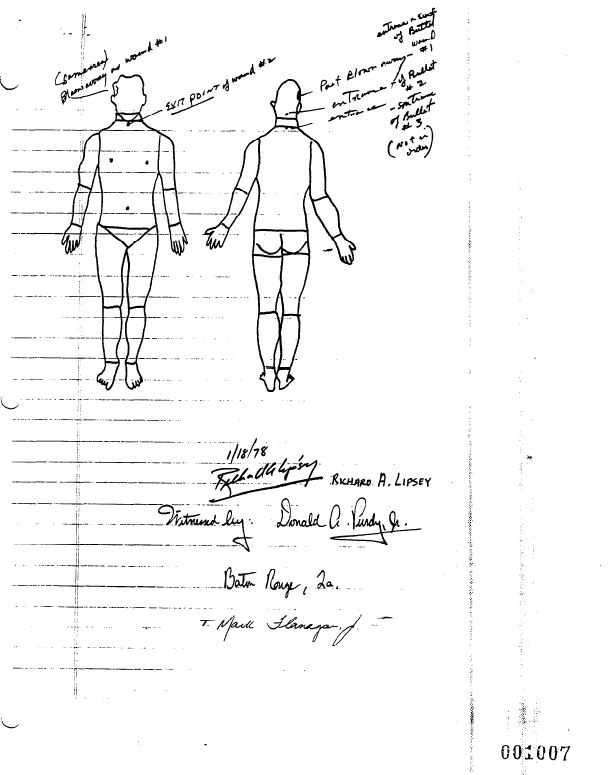 (same area)
Blown away as wound #1
EXIT POINT of wound #2
Part Blown away
entrance - of Bullet
# 2
entrance
of Bullet
# 3
(not in
order)
entrance
of Bullet
wound
# 1
1/18/78
Richard A. Lipsey
RICHARD A. LIPSEY
Witnessed by: Donald A. Purdy, Jr.
Baton Rouge, La.
T. Mark Flanagan, Jr.
001007